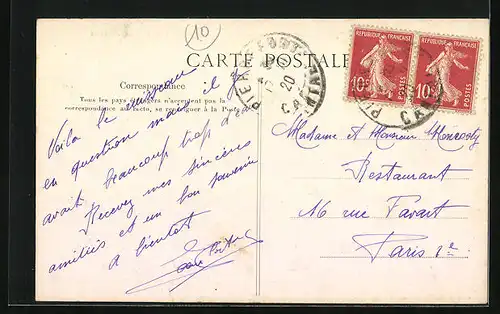 10
CARTE POSTALE
Correspondance
Tous les pays étrangers n'acceptent pas la
correspondance au recto, se renseigner à la Poste
Voila le ruisseau
en question mais il y
avait beaucoup trop d'eau
Recevez mes sincères
amitiés et un bon souvenir
a bientot
PIERREFONDS
20
REPUBLIQUE FRANÇAISE
10c
POSTES
REPUBLIQUE FRANÇAISE
10c
POSTES
Madame et Monsieur
Restaurant
16 rue Favart
Paris 2e